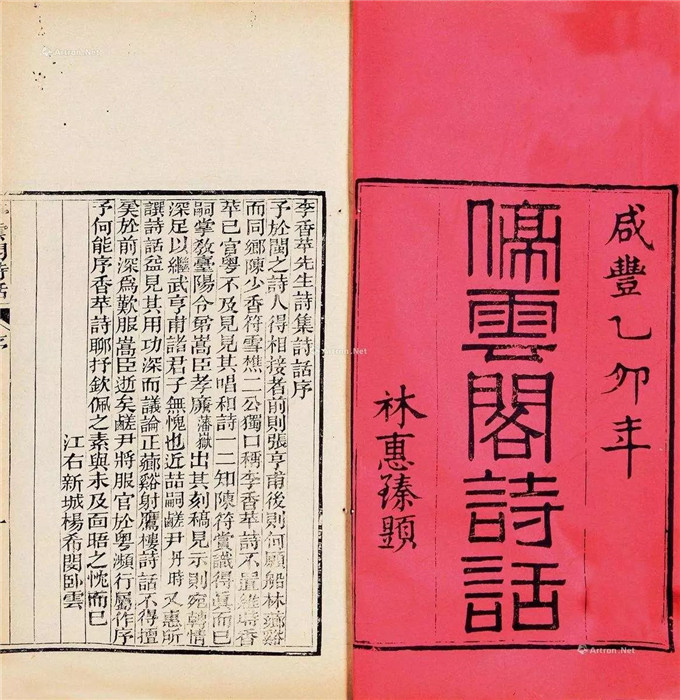 咸豐乙卯年
停雲閣詩話
林惠臻題
李香苹先生詩集詩話序
予於閩之詩人得相接者前則張亨甫後則何願船林薌谿
而同鄉陳少香符雪樵二公獨口稱李香苹詩不置維時香
苹已官粵不及見見其唱和詩一二知陳符賞識得眞而已
嗣掌敎臺陽令弟嵩臣孝廉藩嶽出其刻稿見示則宛轉情
深足以繼武亨甫諸君子無愧也近喆嗣鹺尹丹時又惠所
譔詩話益見其用功深而議論正薌谿射鷹樓詩話不得擅
矣於前深爲歎服嵩臣逝矣鹺尹將服官於粵瀕行屬作序
予何能序香苹詩聊抒欽佩之素與未及面晤之忱而已
江右新城楊希閔臥雲
雲閣詩話 序
Artron.Net
Artron.Net
Artron.Net